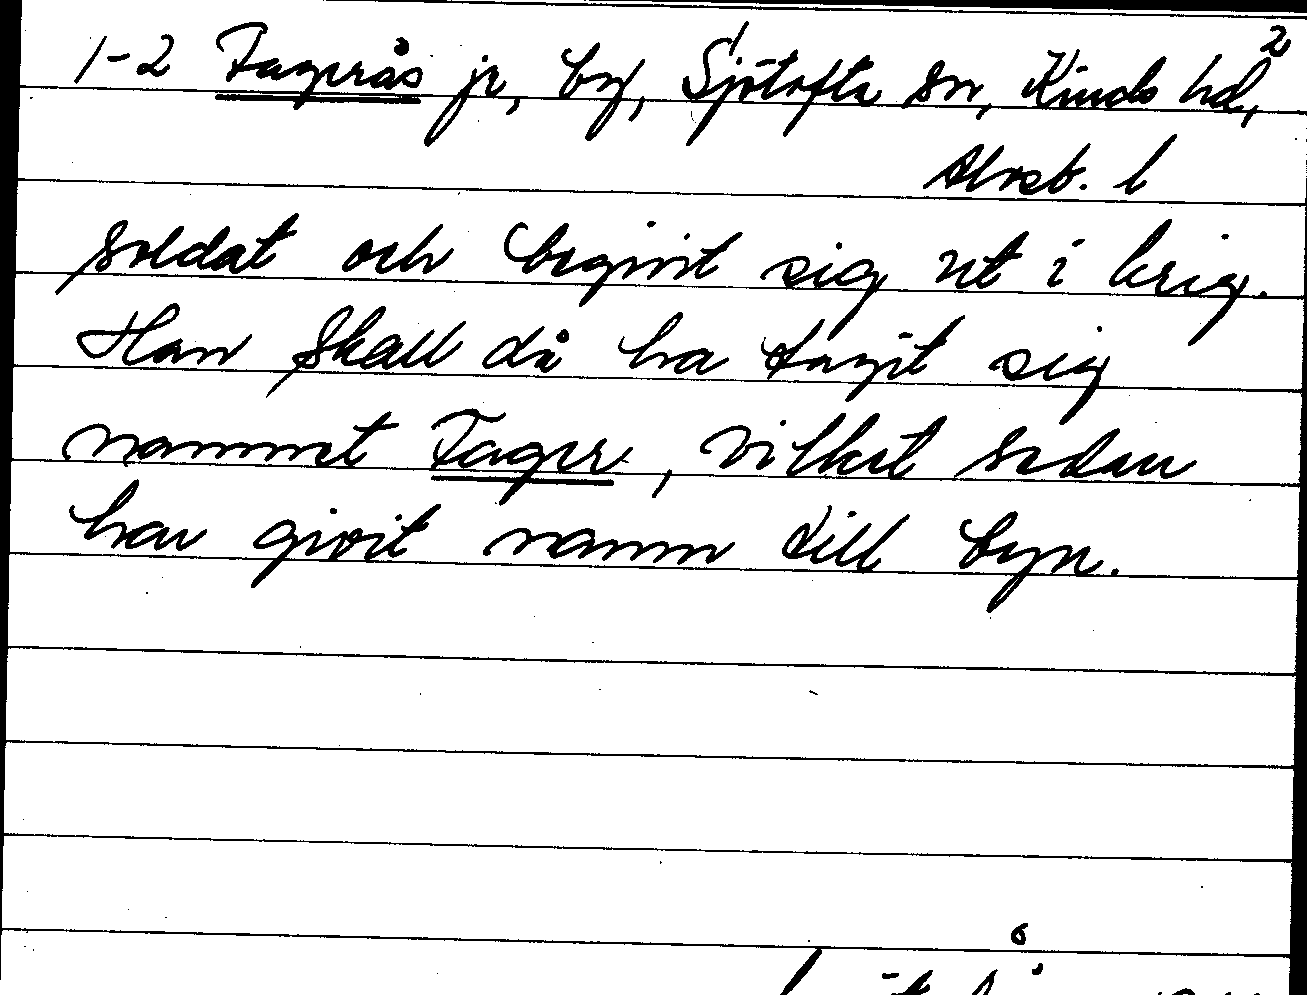 2
1-2 Fagerås jr, by, Sjötofta sn, Kinds hd,
Älvsb. l
soldat och begivit sig ut i krig.
Han skall då ha tagit sig
namnet Fager, vilket sedan
har givit namn till byn.